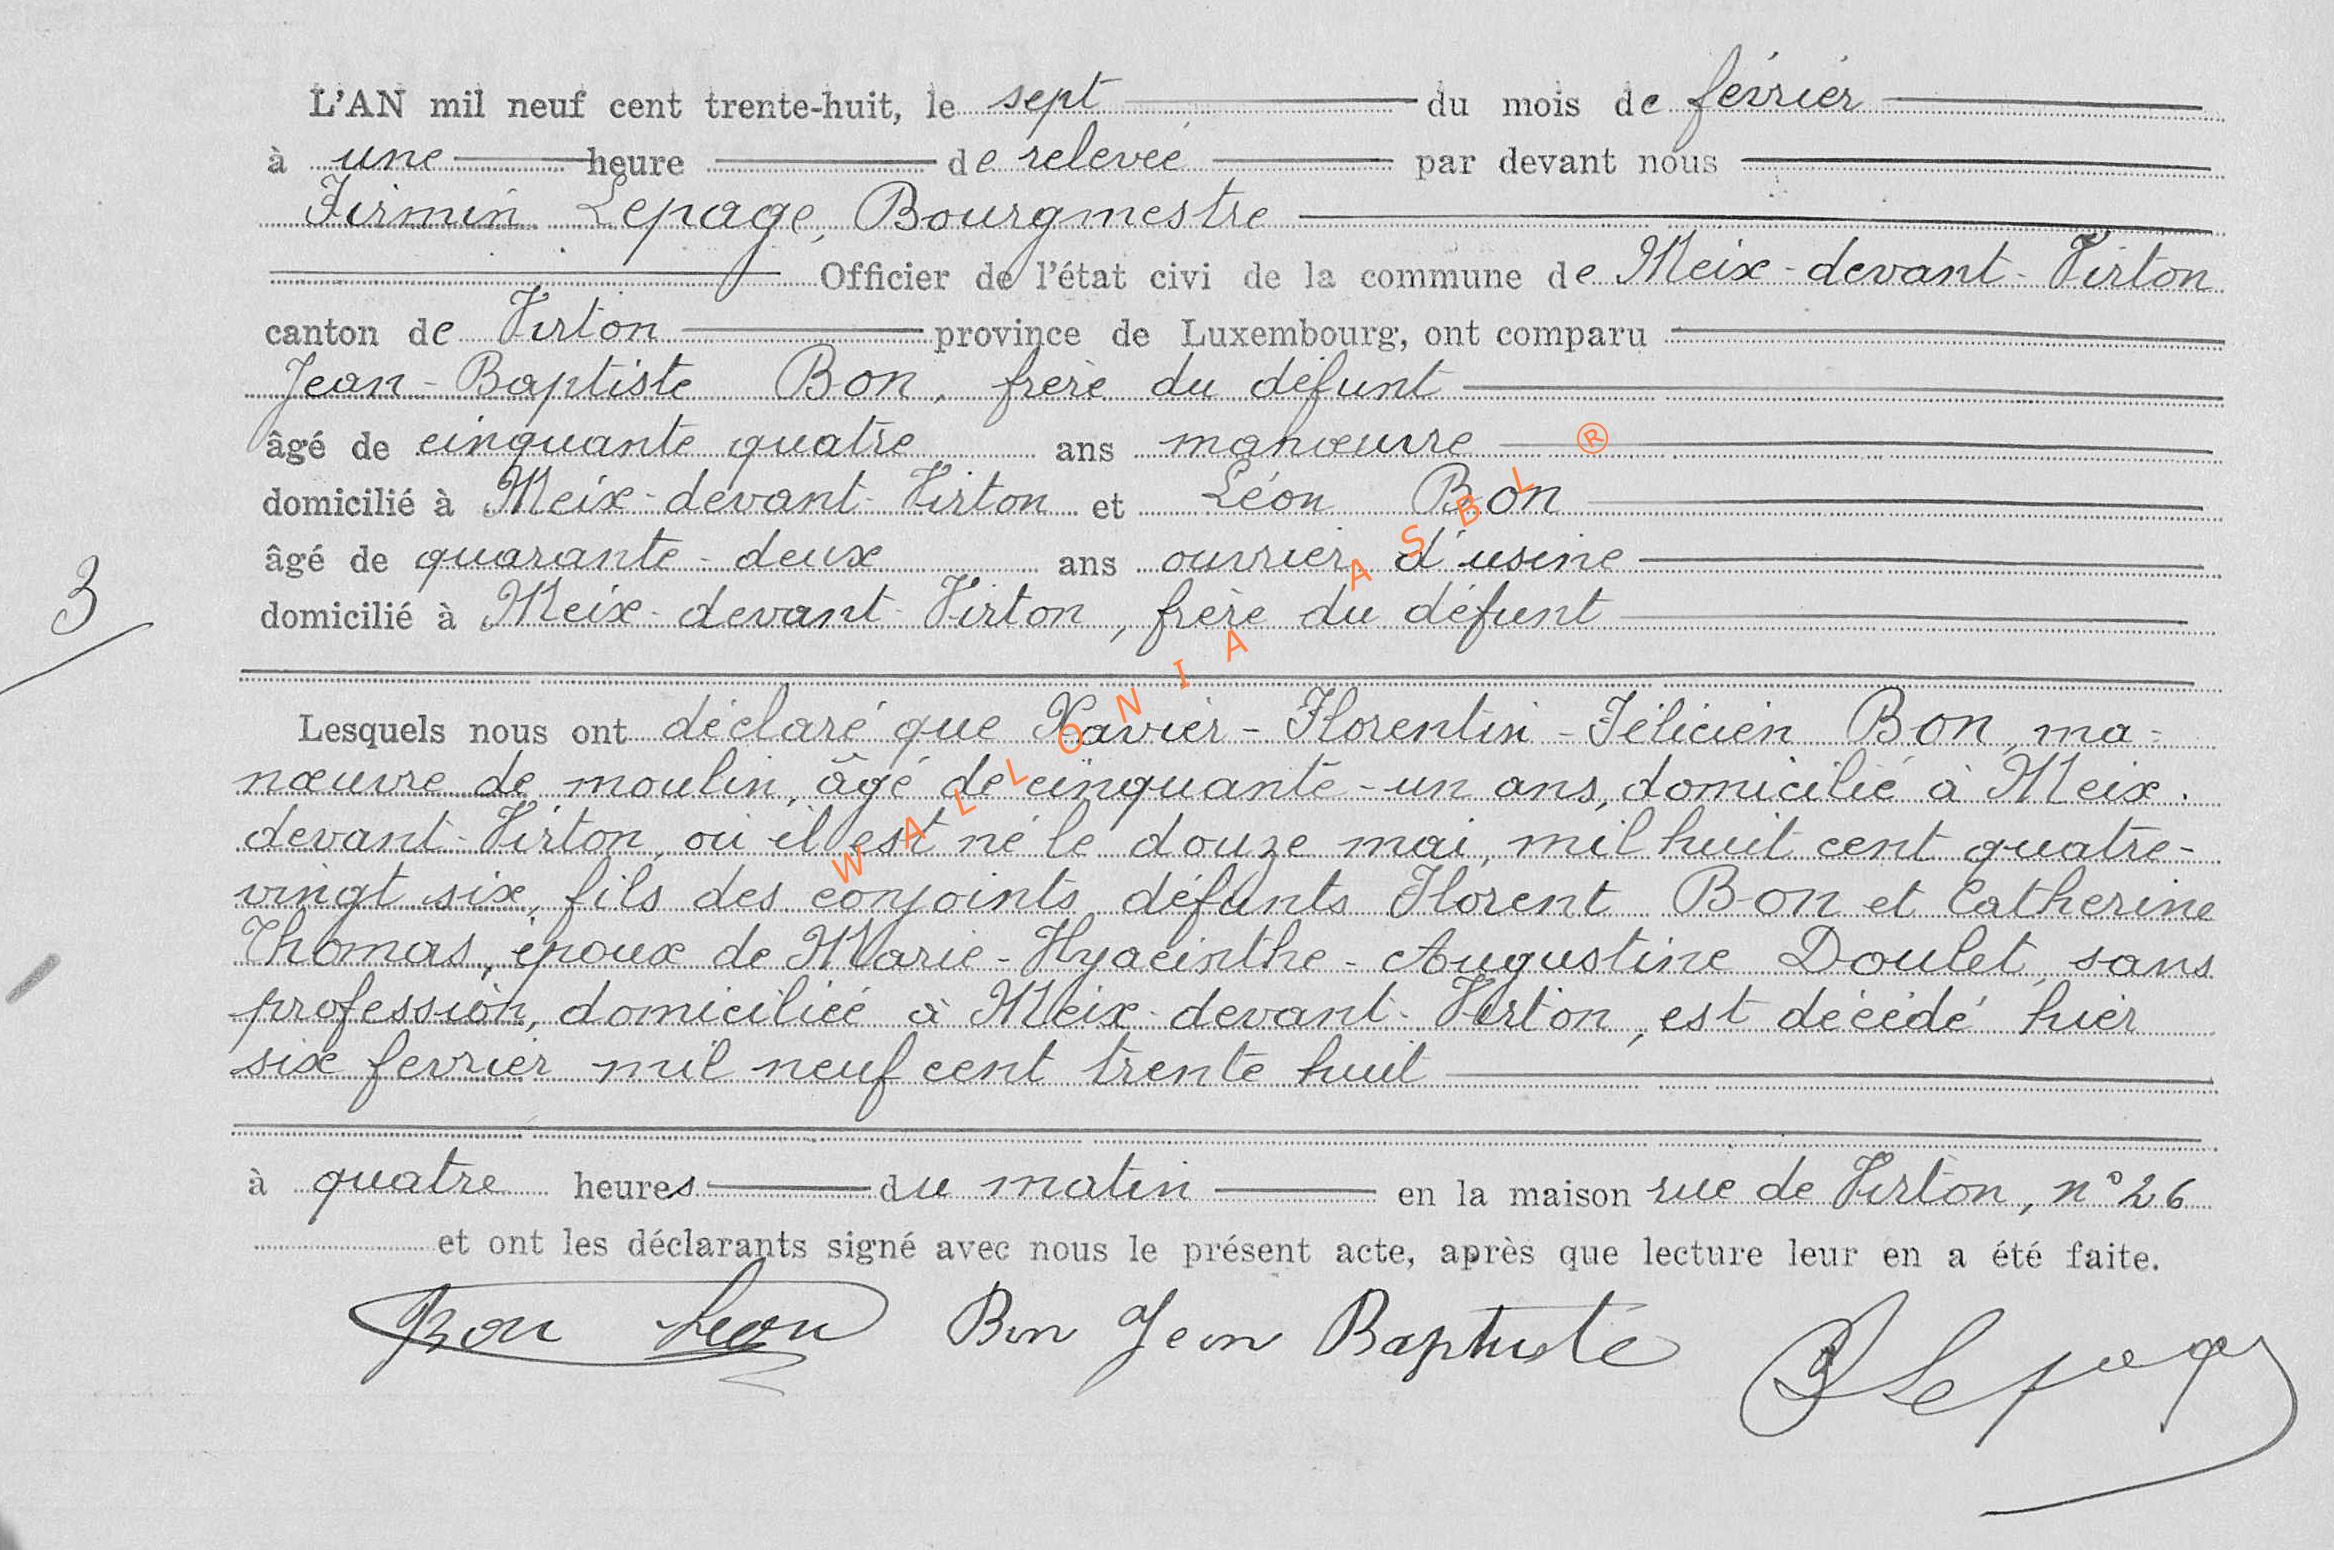 L'AN mil neuf cent trente-huit, le sept du mois de février
à une heure de relevée par devant nous
Firmin Lepage, Bourgmestre
Officier de l'état civi de la commune de Meix-devant-Virton
canton de Virton province de Luxembourg, ont comparu
Jean-Baptiste Bon, frère du défunt
âgé de cinquante quatre ans manœuvre
domicilié à Meix-devant-Virton et Léon Bon
âgé de quarante-deux ans ouvrier d'usine
3
domicilié à Meix-devant-Virton, frère du défunt
Lesquels nous ont déclaré que Xavier-Florentin-Félicien Bon, ma-
nœuvre de moulin, âgé de cinquante-un ans, domicilié à Meix-
devant-Virton, où il est né le douze mai, mil huit cent quatre-
vingt six, fils des conjoints défunts Florent Bon et Catherine
Thomas, époux de Marie-Hyacinthe-Augustine Doulet, sans
profession, domiciliée à Meix-devant-Virton, est décédé hier
six fevrier mil neuf cent trente huit
à quatre heures du matin en la maison rue de Virton, n° 26
et ont les déclarants signé avec nous le présent acte, après que lecture leur en a été faite.
Bon Léon Bon Jean Baptiste Lepage
WALLONIA ASBL ®